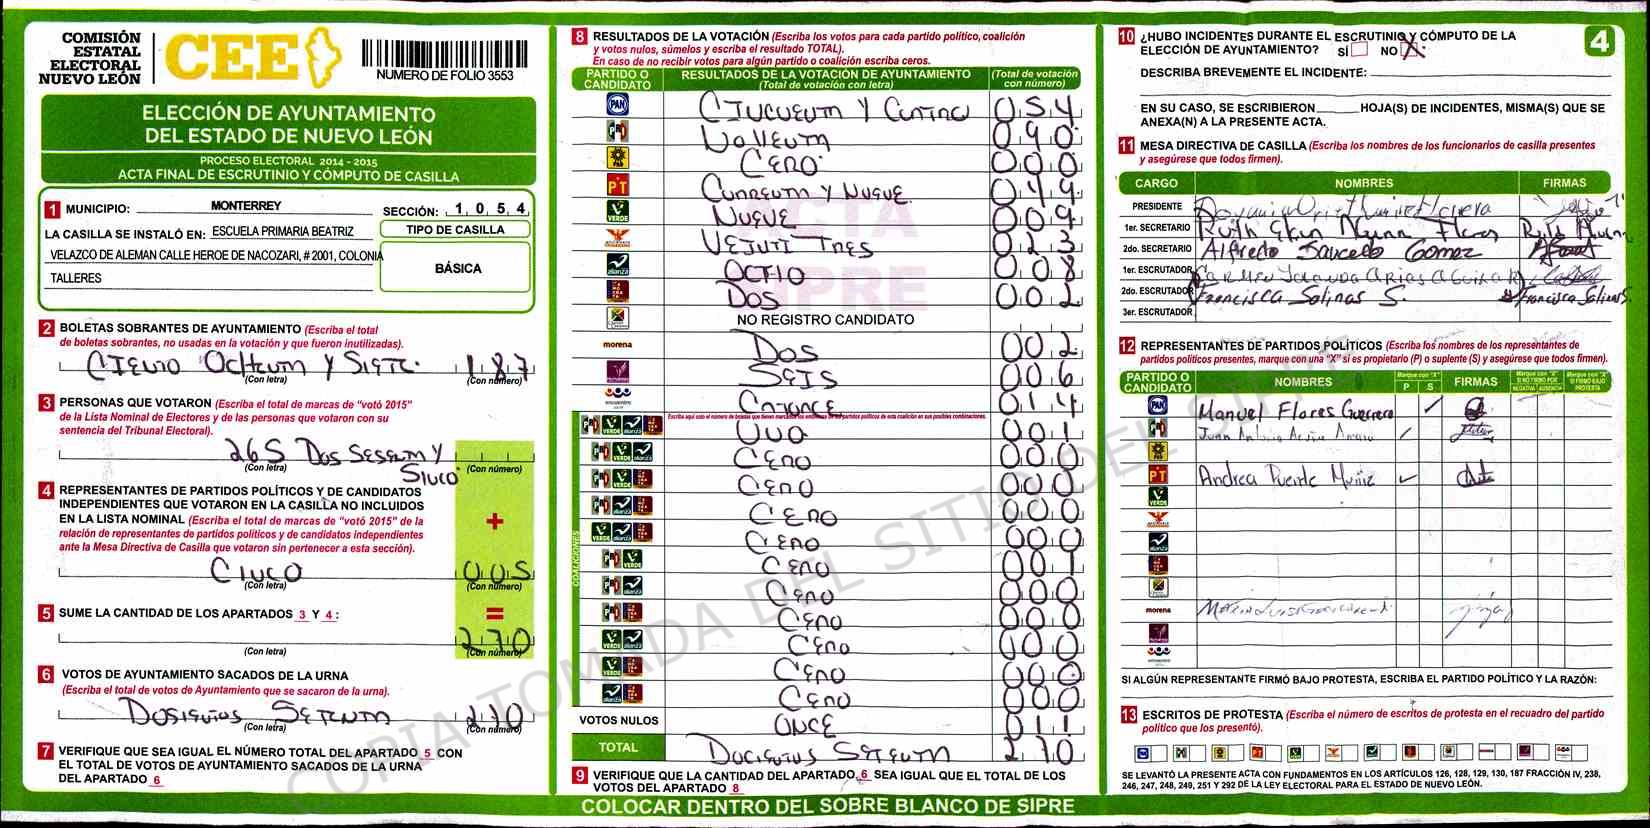 COMISIÓN
ESTATAL
ELECTORAL
NUEVO LEÓN
CEE
NUMERO DE FOLIO 3553
ELECCIÓN DE AYUNTAMIENTO
DEL ESTADO DE NUEVO LEÓN
PROCESO ELECTORAL 2014 - 2015
ACTA FINAL DE ESCRUTINIO Y CÓMPUTO DE CASILLA
1 MUNICIPIO: MONTERREY SECCIÓN: 1 0 5 4
LA CASILLA SE INSTALÓ EN: ESCUELA PRIMARIA BEATRIZ
VELAZCO DE ALEMAN CALLE HEROE DE NACOZARI, # 2001, COLONIA
TALLERES
TIPO DE CASILLA
BÁSICA
2 BOLETAS SOBRANTES DE AYUNTAMIENTO (Escriba el total
de boletas sobrantes, no usadas en la votación y que fueron inutilizadas).
Ciento Ochenta y Siete 187
(Con letra) (Con número)
3 PERSONAS QUE VOTARON (Escriba el total de marcas de "votó 2015"
de la Lista Nominal de Electores y de las personas que votaron con su
sentencia del Tribunal Electoral).
265 Dos Sesenta y
Sinco
(Con letra) (Con número)
4 REPRESENTANTES DE PARTIDOS POLÍTICOS Y DE CANDIDATOS
INDEPENDIENTES QUE VOTARON EN LA CASILLA NO INCLUIDOS
EN LA LISTA NOMINAL (Escriba el total de marcas de "votó 2015" de la
relación de representantes de partidos políticos y de candidatos independientes
ante la Mesa Directiva de Casilla que votaron sin pertenecer a esta sección).
+
Cinco 005
(Con letra) (Con número)
5 SUME LA CANTIDAD DE LOS APARTADOS 3 Y 4 :
=
270
(Con letra) (Con número)
6 VOTOS DE AYUNTAMIENTO SACADOS DE LA URNA
(Escriba el total de votos de Ayuntamiento que se sacaron de la urna).
Dosientos Setenta 270
(Con letra) (Con número)
7 VERIFIQUE QUE SEA IGUAL EL NÚMERO TOTAL DEL APARTADO 5 CON
EL TOTAL DE VOTOS DE AYUNTAMIENTO SACADOS DE LA URNA
DEL APARTADO 6
8 RESULTADOS DE LA VOTACIÓN (Escriba los votos para cada partido político, coalición
y votos nulos, súmelos y escriba el resultado TOTAL).
En caso de no recibir votos para algún partido o coalición escriba ceros.
PARTIDO O CANDIDATO RESULTADOS DE LA VOTACIÓN DE AYUNTAMIENTO (Total de votación con letra) (Total de votación con número)
PAN Cincuenta y Cuatro 054
PRI Nollenta 090
PRD Cero 000
PT Cuarenta y Nueve 049
VERDE Nueve 009
Veinti Tres 023
alianza Octio 008
Dos 002
NO REGISTRO CANDIDATO
morena Dos 002
Seis 006
encuentro Catorce 014
COALICIONES
Escriba aquí solo el número de boletas que tienen marcados los emblemas de los partidos políticos de esta coalición en sus posibles combinaciones.
PRI VERDE alianza Uno 001
PRI VERDE alianza Cero 000
PRI VERDE Cero 000
PRI alianza Cero 000
VERDE alianza Cero 000
PRI VERDE Cero 001
PRI alianza Cero 000
PRI Cero 000
VERDE alianza Cero 000
VERDE Cero 000
alianza Cero 000
VOTOS NULOS Once 011
TOTAL Docientos Setenta 270
9 VERIFIQUE QUE LA CANTIDAD DEL APARTADO 6 SEA IGUAL QUE EL TOTAL DE LOS
VOTOS DEL APARTADO 8
ACTA
SIPRE
COPIA TOMADA DEL SITIO DEL SIPRE
COLOCAR DENTRO DEL SOBRE BLANCO DE SIPRE
4
10 ¿HUBO INCIDENTES DURANTE EL ESCRUTINIO Y CÓMPUTO DE LA
ELECCIÓN DE AYUNTAMIENTO? SÍ NO X
DESCRIBA BREVEMENTE EL INCIDENTE:
EN SU CASO, SE ESCRIBIERON HOJA(S) DE INCIDENTES, MISMA(S) QUE SE
ANEXA(N) A LA PRESENTE ACTA.
11 MESA DIRECTIVA DE CASILLA (Escriba los nombres de los funcionarios de casilla presentes
y asegúrese que todos firmen).
CARGO NOMBRES FIRMAS
PRESIDENTE
1er. SECRETARIO Ruth Flores
2do. SECRETARIO Alfredo Saucedo Gomez
1er. ESCRUTADOR Carmen Yolanda Arias
2do. ESCRUTADOR Francisca Salinas S. Francisca Salinas S.
3er. ESCRUTADOR
12 REPRESENTANTES DE PARTIDOS POLÍTICOS (Escriba los nombres de los representantes de
partidos políticos presentes, marque con una "X" si es propietario (P) o suplente (S) y asegúrese que todos firmen).
PARTIDO O CANDIDATO NOMBRES Marque con "X" P S FIRMAS Marque con "X" SI NO FIRMÓ POR NEGATIVA AUSENCIA Marque con "X" SI FIRMÓ BAJO PROTESTA
PAN Manuel Flores Guerrero
PRI Juan Antonio
PRD
PT Andrea Puente Muñiz
VERDE
alianza
morena Maria Luisa
encuentro
SI ALGÚN REPRESENTANTE FIRMÓ BAJO PROTESTA, ESCRIBA EL PARTIDO POLÍTICO Y LA RAZÓN:
13 ESCRITOS DE PROTESTA (Escriba el número de escritos de protesta en el recuadro del partido
político que los presentó).
SE LEVANTÓ LA PRESENTE ACTA CON FUNDAMENTOS EN LOS ARTÍCULOS 126, 128, 129, 130, 187 FRACCIÓN IV, 238,
246, 247, 248, 249, 251 Y 292 DE LA LEY ELECTORAL PARA EL ESTADO DE NUEVO LEÓN.